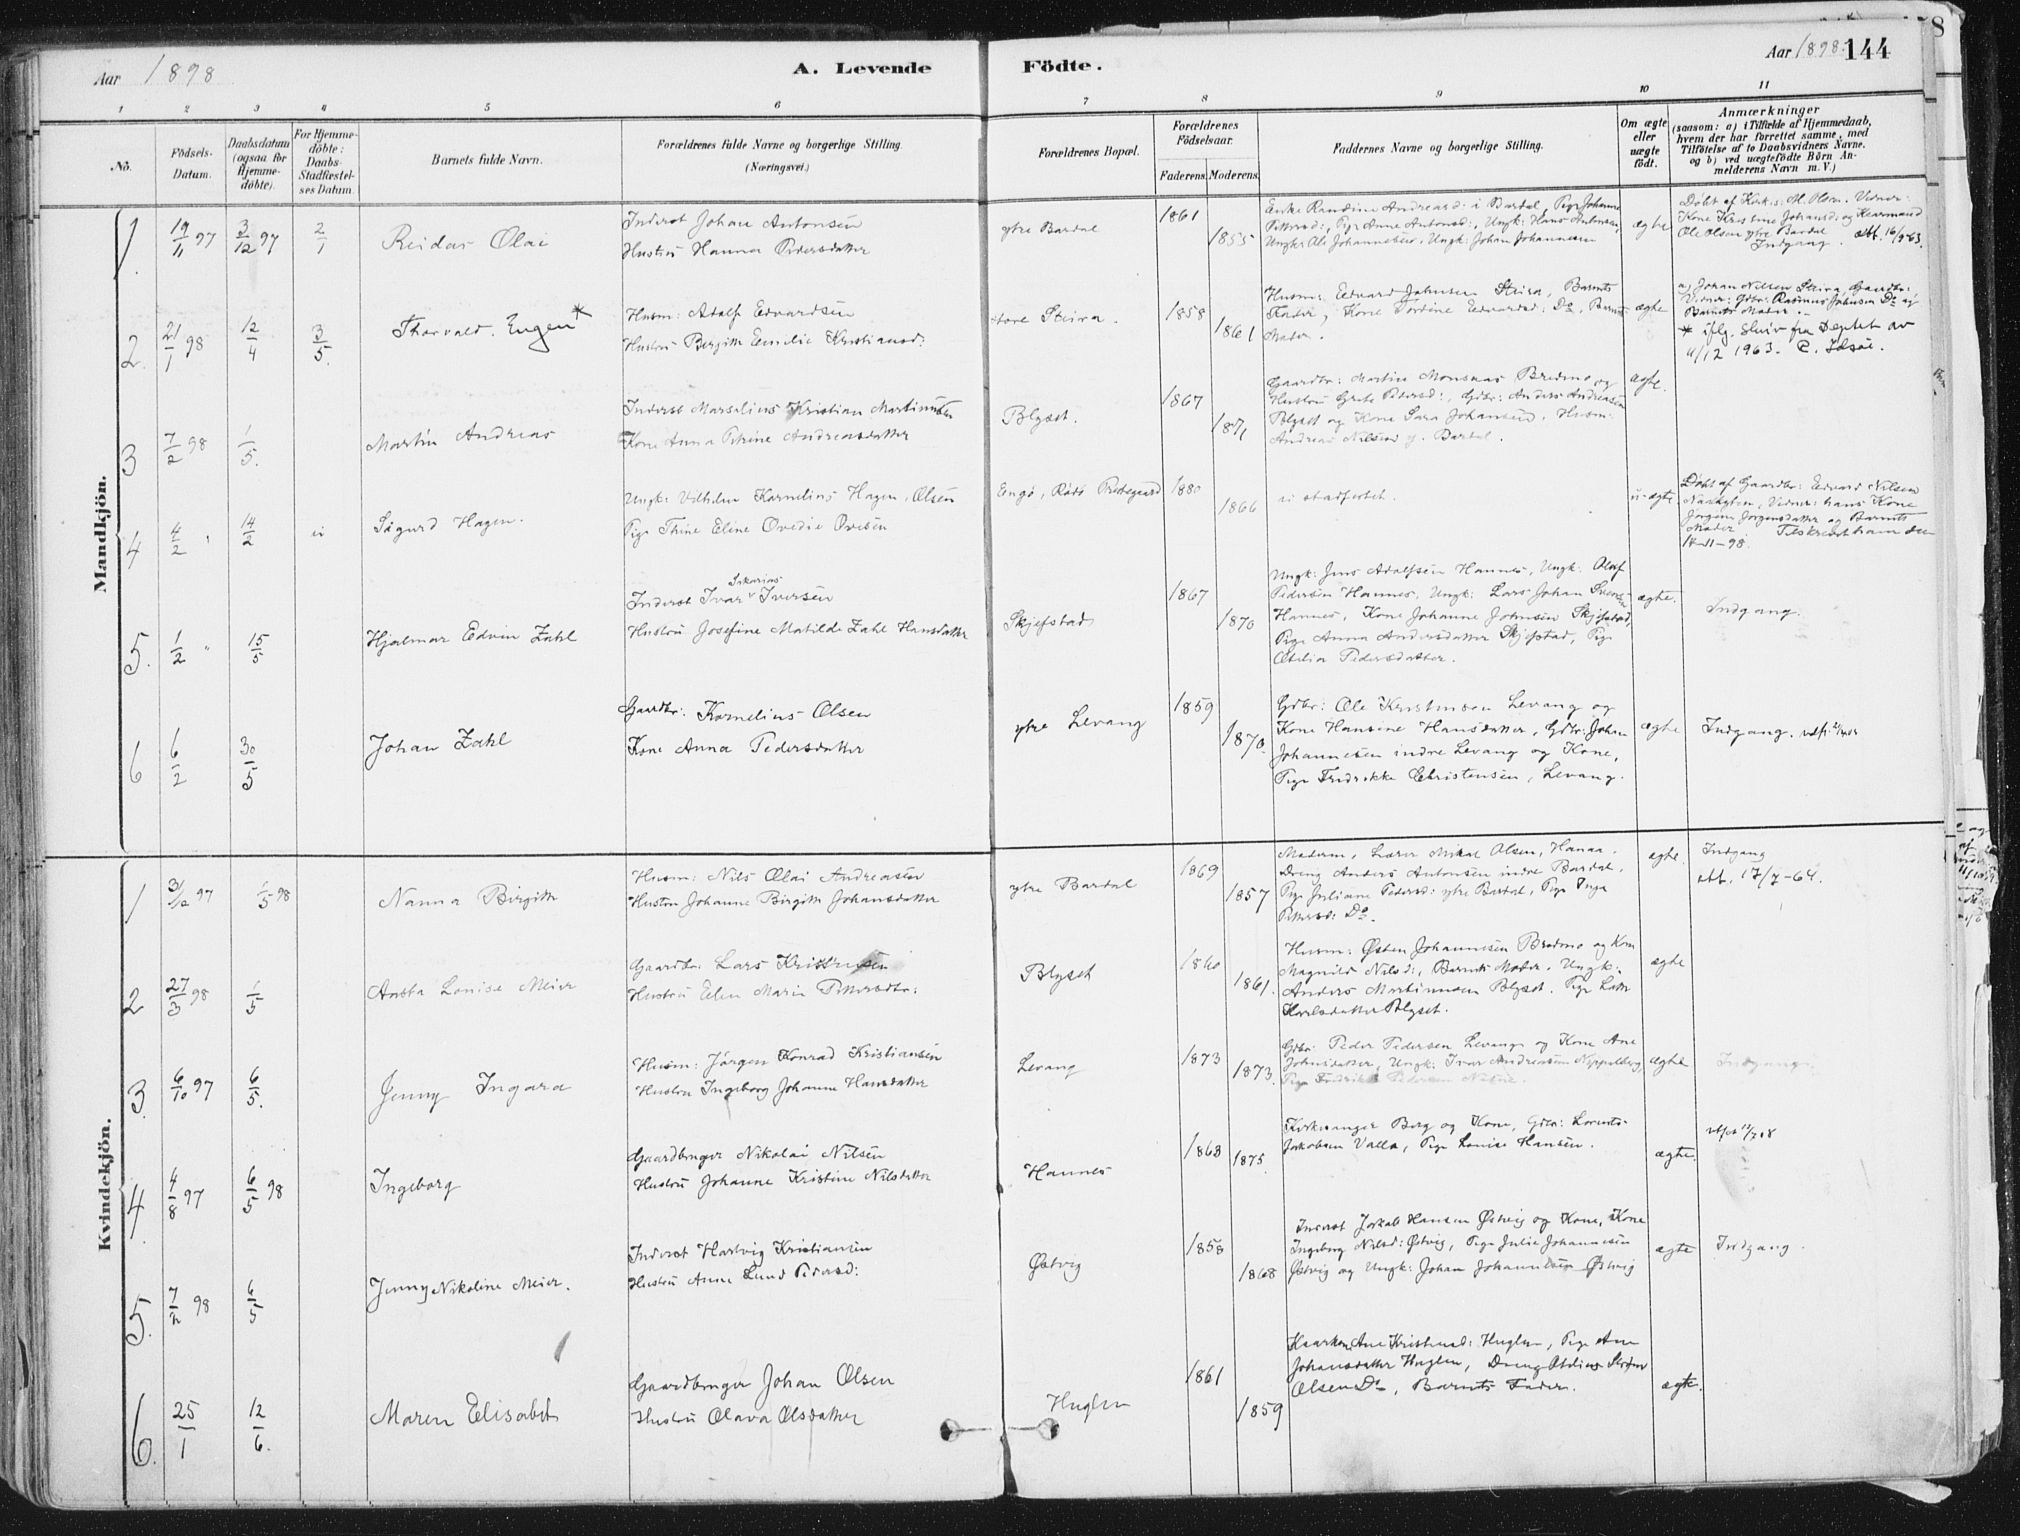 Aar 1898
A. Levende Födte.
Aar 1898. 144
1 2 3 4 5 6 7 8 9 10 11
No.
Födsels-Datum.
Daabsdatum (ogsaa for Hjemme-döbte).
For Hjemme-döbte: Daabs-Stadfæstel-ses Datum.
Barnets fulde Navn.
Forældrenes fulde Navne og borgerlige Stilling. (Næringsvei.)
Forældrenes Bopæl.
Forældrenes Födselsaar.
Faderens. Moderens.
Faddernes Navne og borgerlige Stilling.
Om ægte eller uægte födt.
Anmærkninger
(saasom: a) i Tilfælde af Hjemmedaab, hvem der har forrettet samme, med Tilföielse af to Daabsvidners Navne. og b) ved uægtefödte Börn Anmelderens Navn m. V.)
Mandkjön.
1. 19/11 97 3/12 97 2/1 Reidar Olai
Inderst Johan Antonsen
Hustru Hanna Pedersdatter
ytre Bardal 1861 1855
Enke Randine Andreasd: i Bardal, Pige Johanne
Pettersd:, Pige Anne Antonsd:, Ungk: Hans Antonsen,
Ungkr Ole Johannesen, Ungk: Johan Johannesen
ægte
Döbt af Kirkes: M. Olsen. Vidner:
Kone Kristine Johansd: og Kaarmand
Ole Olsen ytre Bardal
Indgang. att. 16/9-63.
2. 21/1 98 12/4 3/5. Thorvald. Eugen*
Husm: Adolf Edvardsen
Hustru Birgith Emilie Kristiansd:
store Steira. 1858 1861
Husm: Edvard Johnsen Steira, Barnets
Fader, Kone Tordine Edvardsd: Do, Barnets
Moder.
ægte
a) Johan Nilsen Steira, Gaardbr:,
Vidner: Gdbr: Rasmus Johnsen Do og
Barnets Moder.
* iflg. skriv fra Deptet av
4/12 1963. E. Idsøe.
3 7/2 98 1/5. Martin Andreas
Inderst Marselius Kristian Martinussen
Kone Anna Petrine Andreasdatter
Blyset. 1867 1871
Gaardbr: Martin Monsnas Bredmo og
Hustru Grete Petersd:, Gdbr: Anders Andreasen
Blyset og Kone Sara Johansen. Husm:
Andreas Nilsen y. Bardal.
ægte.
4 4/2 " 14/2 ei Sigurd Hagen.
Ungk: Vilhelm Kornelius Hagen Olsen
Pige Thine Eline Ovedie Ovesen
Engø, Rødø Præstegjæld 1880 1866
ei stadfæstet.
u-ægte
Döbt af Gaardbr: Edvard Nilsen
Vidner: hans Kone
Jørgine Jørgensdatter og Barnets
Moder
14-11-98.
5. 1/2 " 15/5 Hjalmar Edvin Zahl
Inderst Ivar Sakarias Iversen
Hustru Josefine Matilde Zahl Hansdatter
Skjefstad 1867 1870
Ungk: Jens Adolfsen Hannes, Ungk: Olaf
Pedersen Hannes, Ungk: Lars Johan
Hannes, Kone Johanne Johnsen Skjefstad,
Pige Anna Andersdatter Skjefstad, Pige
Otelia Pedersdatter.
ægte.
Indgang.
6 6/2 30/5 Johan Zahl
Gaardbr: Kornelius Olsen
Kone Anna Pedersdatter
ytre Levang 1859 1870.
Gdbr: Ole Kristensen Levang og
Kone Hansine Hansdatter, Gdbr: Johan
Johannesen indre Levang og Kone,
Pige Fredrikke Christensen, Levang.
ægte
Indgang.
Kvindekjön.
1 31/12 97 1/5-98 Nanna Birgith
Husm: Nils Olai Andreassen
Hustru Johanne Birgith Johansdatter
ytre Bardal 1869 1857
Moderen, Lærer Mikal Olsen, Hanna.
Dreng Anders Antonsen indre Bardal,
Pige Juliane Pedersd: ytre Bardal, Pige Inga
Pettersd: Do.
ægte.
Indgang
att. 17/7-64.
2 27/3 98 1/5 Aasta Lovise Meier
Gaardbr: Lars Kristensen
Hustru Elen Marie Pettersdtr:
Blyset 1860 1861.
Husm: Østen Johannesen Bredmo og Kone
Magnild Nilsd:, Barnets Moder. Ungk:
Anders Martinussen Blyset. Pige
Blyset.
ægte
3. 6/10 97 6/5. Jenny Ingara
Husm: Jørgen Konrad Kristiansen
Hustru Ingeborg Johanne Hansdatter
Levang 1873 1873.
Gdbr: Peder Pedersen Levang og Kone Ane
Johnsdatter, Ungk: Ivar Andreassen
ægte
Indgang.
4. 4/8 97 6/5 98 Ingeborg
Gaardbruger Nikolai Nilsen
Hustru Johanne Kristine Nilsdatter
Hannes 1863 1875.
Kirkesanger Berg og Kone, Gdbr: Lorents
Jakobsen Valla, Pige Lovise Hansen.
ægte.
5. 7/2 98 6/5 Jenny Nikoline Meier.
Inderst Hartvig Kristiansen
Hustru Anne Lund Pedersd:
Østvig 1858 1868
Inderst Jakob Hansen Østvig og Kone, Kone
Ingeborg Nilsd: Østvig, Pige Julie Johannesen
Østvig og Ungk: Johan Johannesen Østvig
ægte
Indgang.
6. 25/1 12/6. Maren Elisabet
Gaardbruger Johan Olsen
Hustru Olava Olsdatter
Huglen 1861 1859
Ane Kristensd: Huglen, Pige Ane
Johansdatter Huglen, Dreng
Olsen Do, Barnets Fader.
ægte.